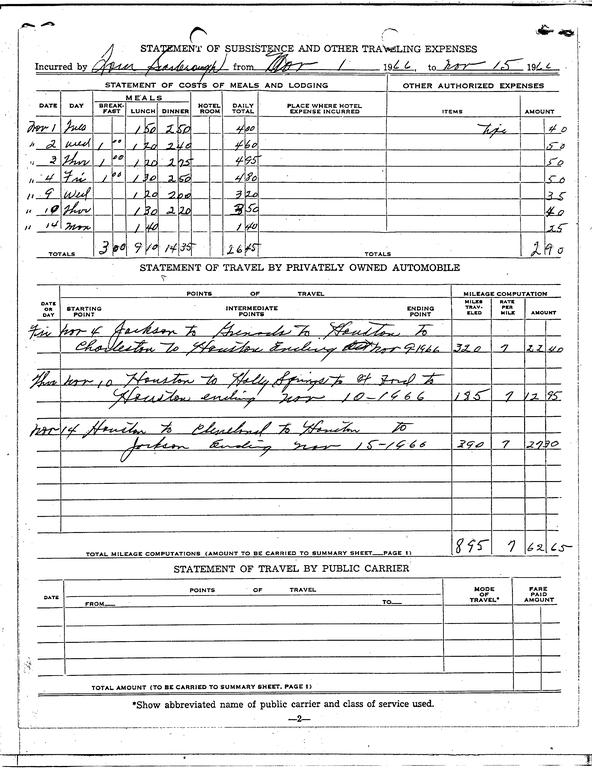 STATEMENT OF SUBSISTENCE AND OTHER TRAVELING EXPENSES
Incurred by Tom Scarbrough from Nov 1 1966, to Nov 15 1966
STATEMENT OF COSTS OF MEALS AND LODGING OTHER AUTHORIZED EXPENSES
MEALS
DATE DAY BREAK-FAST LUNCH DINNER HOTEL ROOM DAILY TOTAL PLACE WHERE HOTEL EXPENSE INCURRED ITEMS AMOUNT
Nov 1 Tues 1 50 2 50 4 00 Tips 40
" 2 Wed 1 00 1 20 2 40 4 60 50
" 3 Thur 1 00 1 20 2 75 4 95 50
" 4 Fri 1 00 1 30 2 50 4 80 50
" 9 Wed 1 20 2 00 3 20 35
" 10 Thur 1 30 2 20 3 50 40
" 14 Mon 1 40 1 40 25
TOTALS 3 00 9 10 14 35 26 45 TOTALS 2 90
STATEMENT OF TRAVEL BY PRIVATELY OWNED AUTOMOBILE
POINTS OF TRAVEL MILEAGE COMPUTATION
DATE OR DAY STARTING POINT INTERMEDIATE POINTS ENDING POINT MILES TRAV-ELED RATE PER MILE AMOUNT
Fri Nov 4 Jackson to Grenada to Houston to
Charleston to Houston Ending Nov 9-1966 320 7 22 40
Thur Nov 10 Houston to Holly Springs to to
Houston ending Nov 10-1966 185 7 12 95
Nov 14 Houston to Cleveland to Houston to
Jackson Ending Nov 15-1966 390 7 27 30
TOTAL MILEAGE COMPUTATIONS (AMOUNT TO BE CARRIED TO SUMMARY SHEET—PAGE 1) 895 7 62 65
STATEMENT OF TRAVEL BY PUBLIC CARRIER
DATE POINTS OF TRAVEL MODE OF TRAVEL* FARE PAID AMOUNT
FROM— TO—
TOTAL AMOUNT (TO BE CARRIED TO SUMMARY SHEET, PAGE 1)
*Show abbreviated name of public carrier and class of service used.
—2—